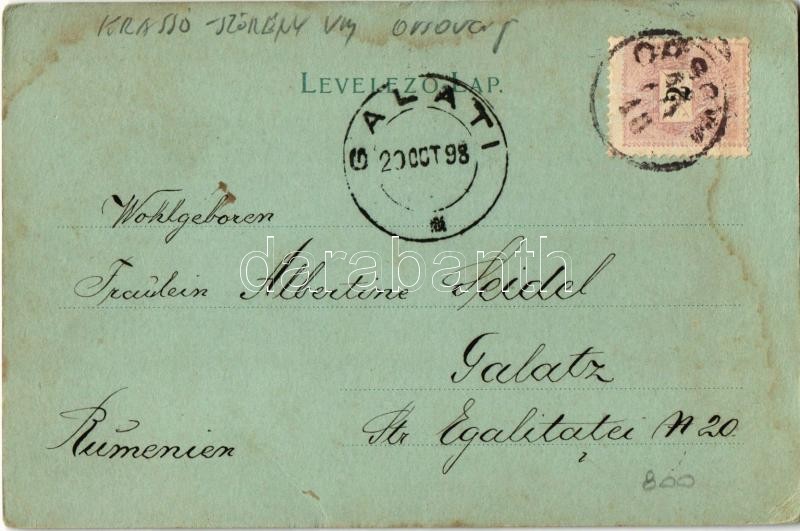 KRASSÓ-SZÖRÉNY VM
LEVELEZŐ-LAP.
GALATI
20 OCT 98
ORSOVA
2
Wohlgeboren
Fräulein Albertine Seidel
Galatz
Str Egalitatei N 20.
Rumenien
800
darabanth